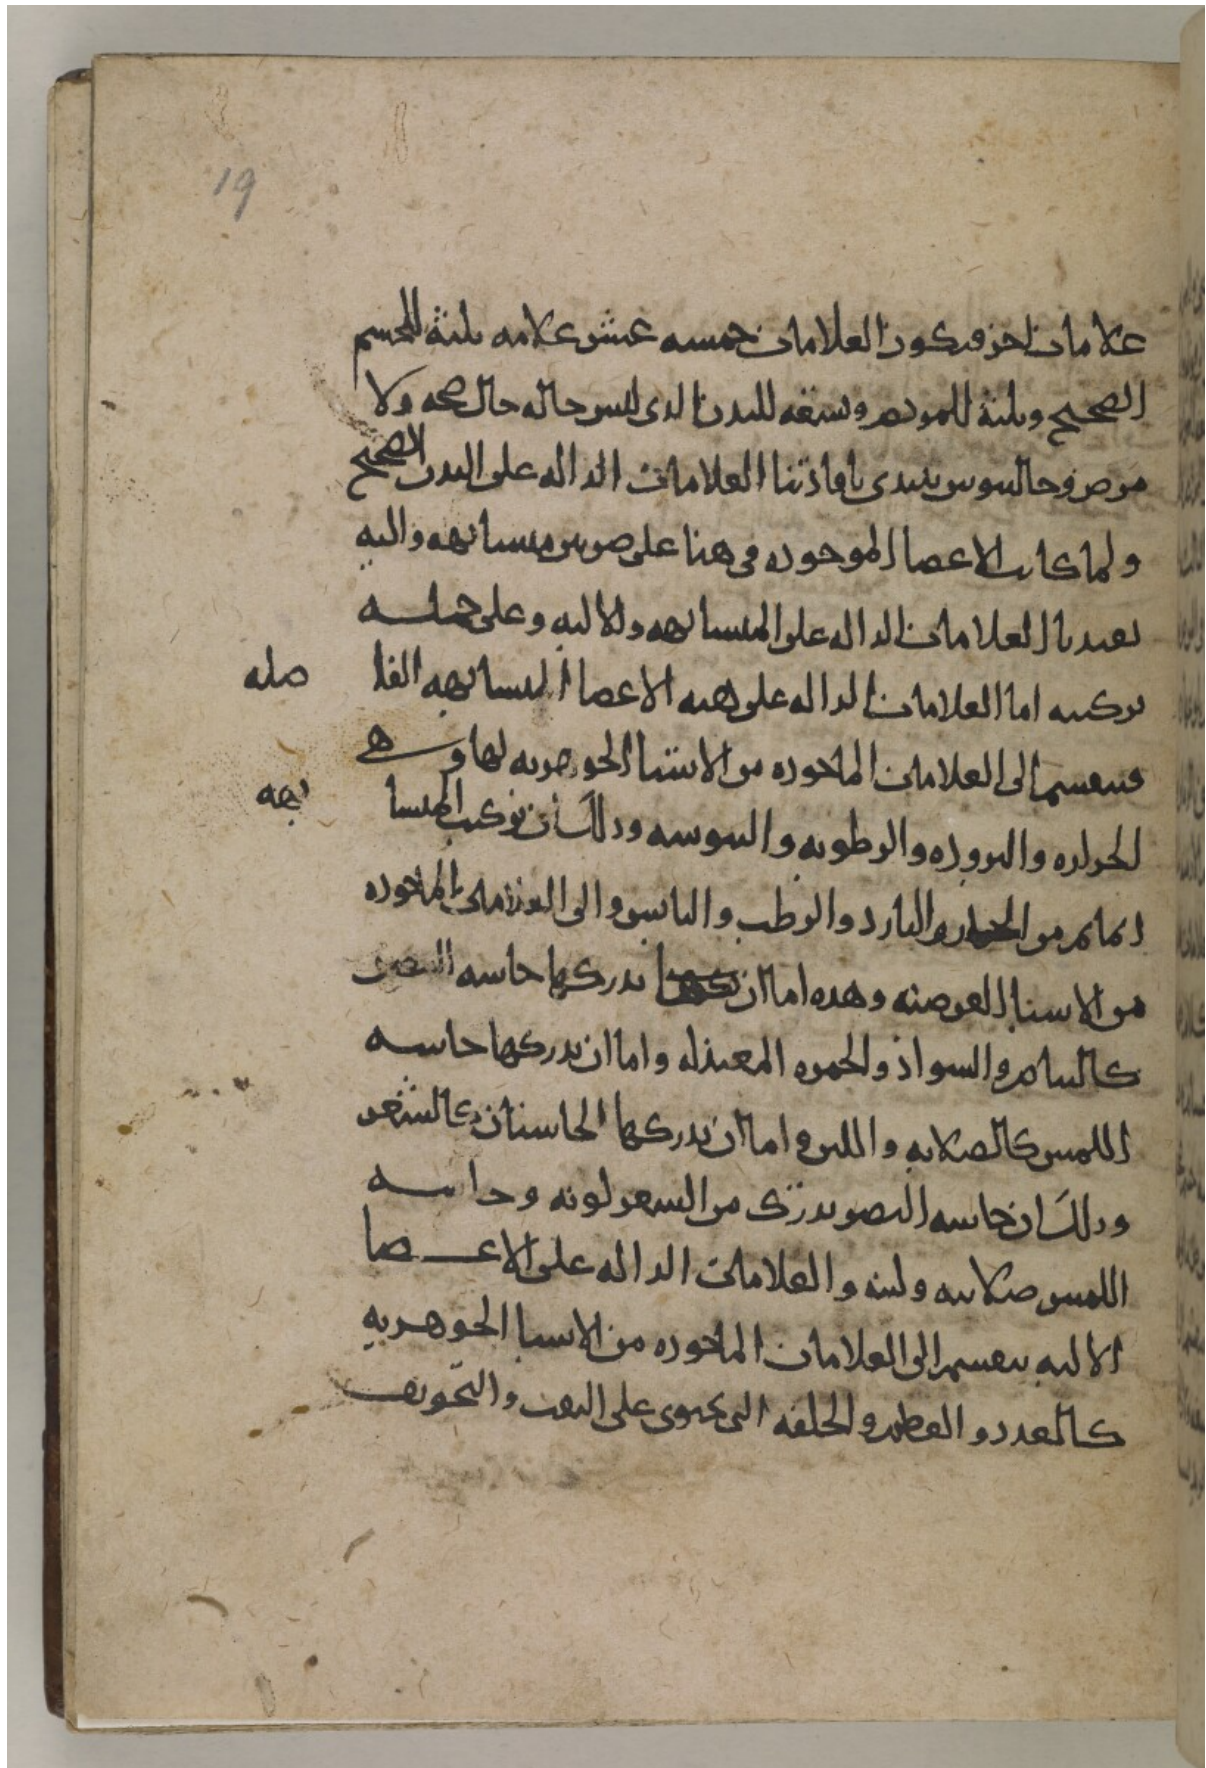 19
علامات اخر فيكون العلامات خمسه عشر علامه ثلثة للجسم
الصحيح وثلثة للمريض وتسعه للبدن الذي ليس حاله حال صحه ولا
مرض وجالينوس يبتدى بافادتنا العلامات الداله على البدن الصحيح
ولما كانت الاعضا الموجوده في هنا على ضربين متشابهه واليه
العلامات الداله على المتشابهه والاليه وعلى
تركيبه اما العلامات الداله على هيه الاعضا المتشابهه الفا ضله
فتنقسم الى العلامات الماخوذه من الاشيا الجوهريه لها وهي
الحراره والبروده والرطوبه واليبوسه وذلك ان تركيب المتشا بهه
انما تم من الحار والبارد والرطب واليابس والى العلامات الماخوذه
من الاشيا العرضيه وهذه اما ان يدركها حاسه البصر
كالبياض والسواد والحمره المعتدله واما ان يدركها حاسه
اللمس كالصلابه واللين واما ان يدركها الحاستان كالشعر
وذلك ان حاسه البصر يدرك من الشعر لونه وحاسه
اللمس صلابته ولينه والعلامات الداله على الاعضا
الاليه ينقسم الى العلامات الماخوذه من الاشيا الجوهريه
كالعدد والعظم والخلقه التي يحتوى على الثقب والتجويف